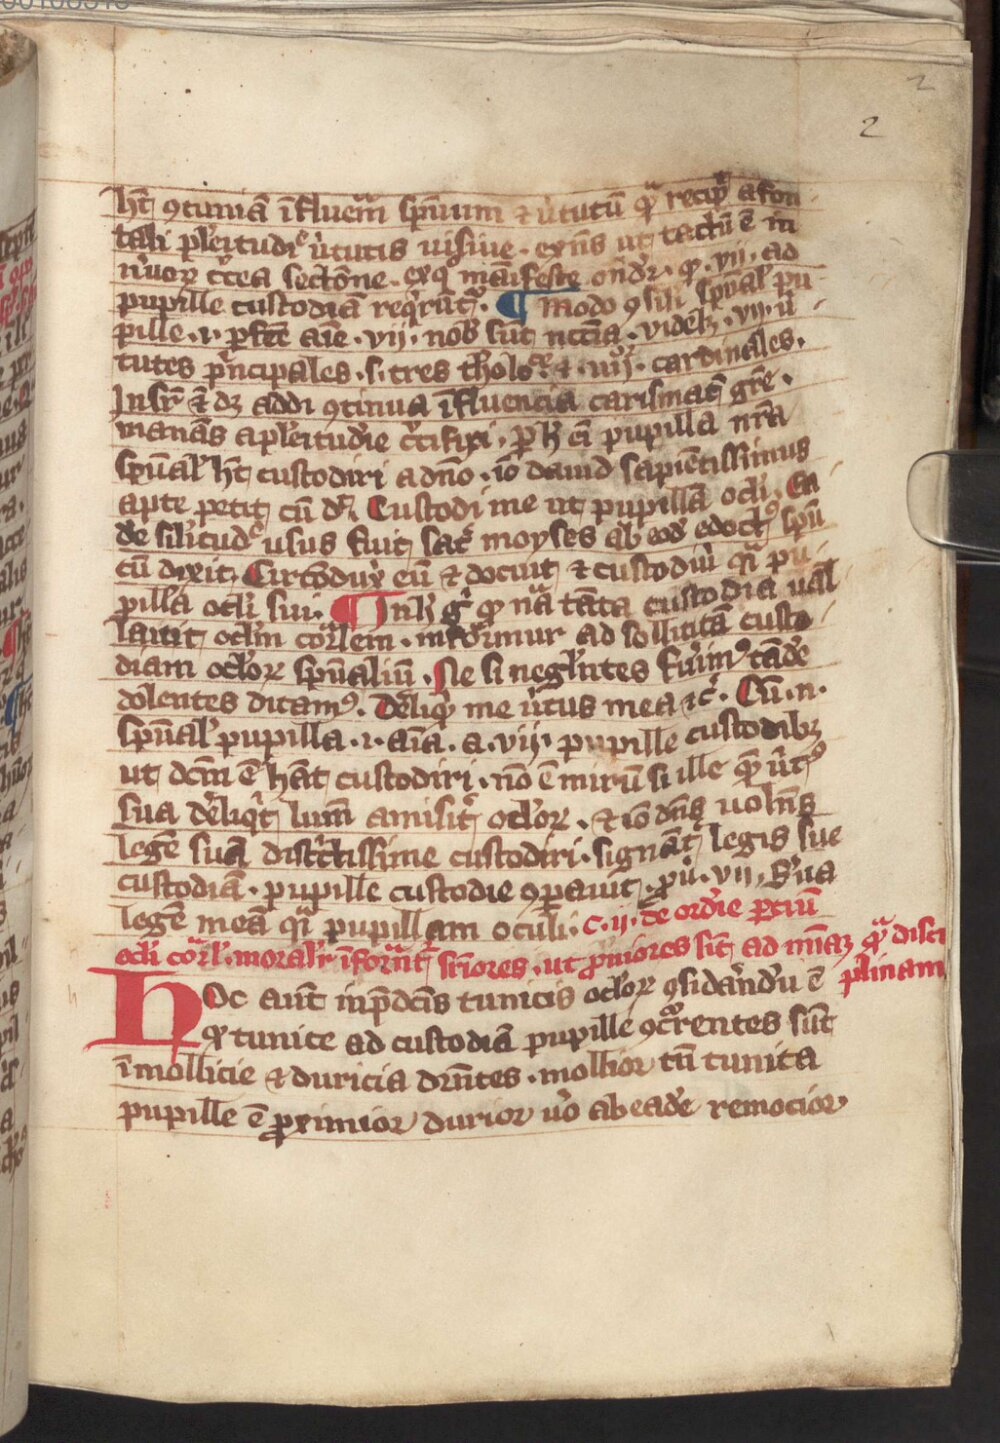 2
2
hꝫ ꝯtinuā īfluēm spūum ⁊ v̓tutū qᷓ recip̄ a fon
tali plēitudīe v̓tutis uisiue · exn̄s ut tactū ē in
n̓uoꝝ sectōne · exq̄ māifeste on̄dr̄ · ꝙ · vii · ad
pupille custodiā req̓rūt᷑ · ¶ modo ꝯsili spūal̓ pu
pille · i · aīe · vii · nob̄ sūt n̄cc̄ia · vidēlꝫ · vii · v̓
tutes p̓ncipales · s · tres tholo · ⁊ · iiii · cardinales ·
Insuꝑ ⁊ dꝫ addi ꝯtinua īfluencia carismat̄ gr̄e ·
manās a plēitudīe c̓cifixi · p̄ h̄ em̄ pupilla nr̄a
spūal̓ hꝫ custodiri a dn̄o · iō dauid sapiētissimus
apte petit cū dr̄ Custodi me ut pupillā oc̄li · Ea
de sil̓itudīe usus fuit sac̄ moyses ab eod̄ edoctꝰ spū
cū dixit · Circōdux̄ eū ⁊ docuit ⁊ custodiuı̄ q̄i pu
pillā oc̄li sui · ¶ In h̄ gͥ ꝙ nā tāta custodia ual
lauit oc̄lm cor̄lem · informur ad sollicitā custo
diam oc̄loꝝ spūaliū · Ne si negl̄ntes fu̓imꝰ tādē
dolentes dicamꝰ · Dēliq̇ me v̓tus mea ⁊c̄ · Cū · n ·
spūal̓ pupilla · i · aīa · a · vii · pupille custodibꝫ
ut dcm̄ ē hāt custodiri · nō ē mirū si ille quē v̓tꝰ
sua dēliq̇t lum̄ amisit oc̄loꝝ · ⁊ iō dn̄s uolēs
legē suā districtissime custodiri · signāt legis sue
custodiā · pupille custodie ꝯpauit · pu̓ · vii · S̓ua
legē meā q̄i pupillam oculi · c · ii · de ordīe ꝑtiū
oc̄li cor̄al̓ · moral̓r īformāt᷑ · ut p̓ores sīt ad nr̄aꝫ disci
plinam
Hoc aūt in p̄dcīs tunicis oc̄loꝝ ꝯsidāndū ē
ꝙ tunice ad custodiā pupille ꝯcr̄rentes sūt
ī mollicie ⁊ duricia dr̄ntes · mollior cū tunica
pupille ē ꝓximior durior v̓o ab eadē remocior